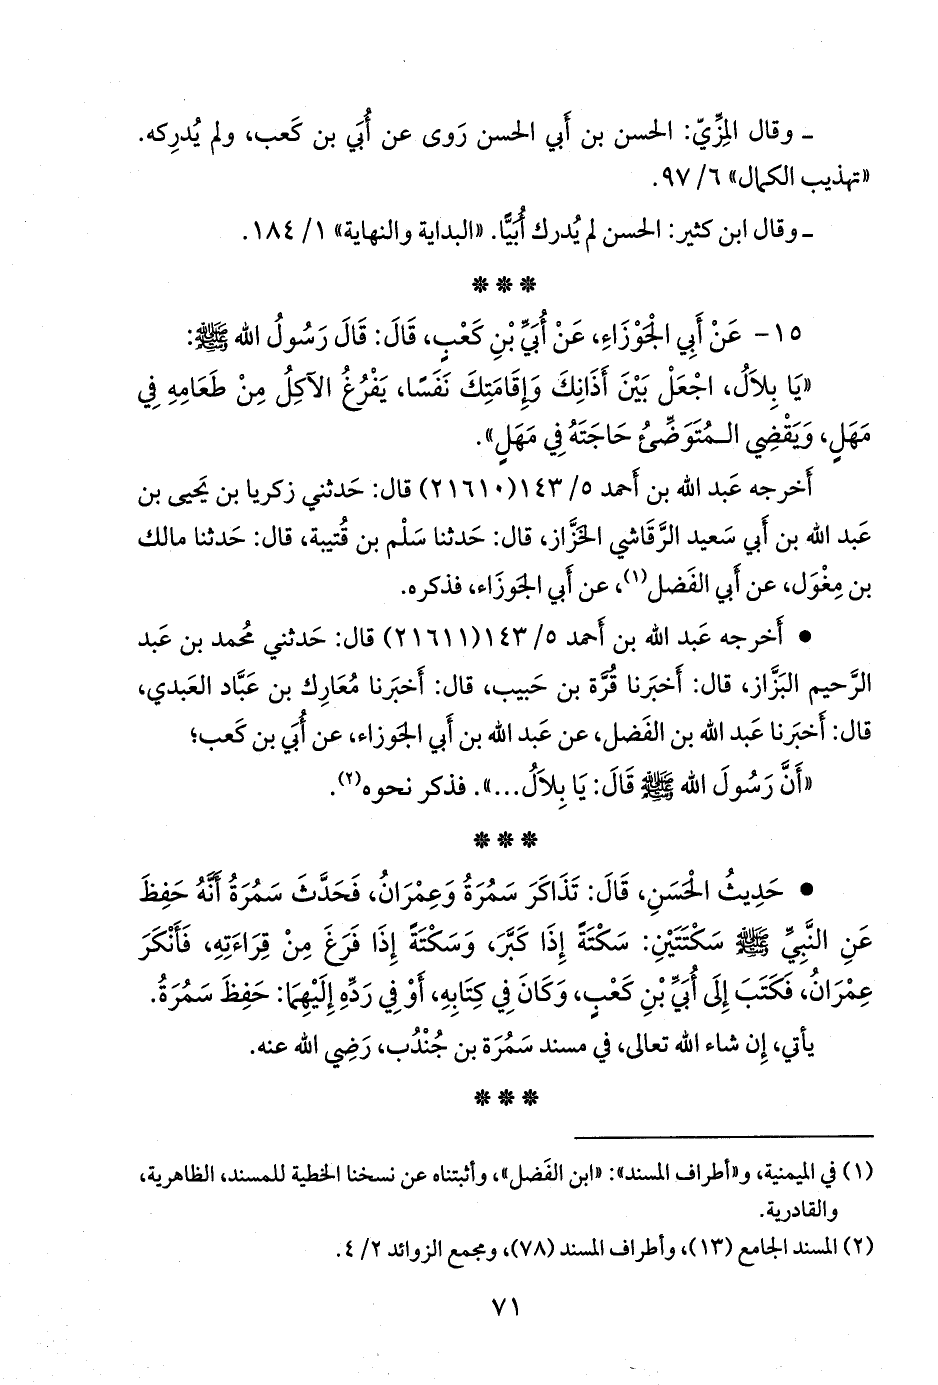 ـ وقال المِزِّيّ: الحسن بن أَبي الحسن رَوى عن أُبَي بن كَعب، ولم يُدرِكه.
«تهذيب الكمال» ٦/ ٩٧.
ـ وقال ابن كثير: الحسن لم يُدرك أُبَيًّا. «البداية والنهاية» ١/ ١٨٤.
* * *
١٥- عَنْ أَبِي الْجَوْزَاءِ، عَنْ أُبَيِّ بْنِ كَعْبٍ، قَالَ: قَالَ رَسُولُ الله ﷺ:
«يَا بِلاَلُ، اجْعَلْ بَيْنَ أَذَانِكَ وَإِقَامَتِكَ نَفَسًا، يَفْرُغُ الآكِلُ مِنْ طَعَامِهِ فِي
مَهَلٍ، وَيَقْضِي الـمُتَوَضِّئُ حَاجَتَهُ فِي مَهَلٍ».
أَخرجه عَبد الله بن أَحمد ٥/ ١٤٣(٢١٦١٠) قال: حَدثني زكريا بن يَحيى بن
عَبد الله بن أَبي سَعيد الرَّقَاشي الخَزَّاز، قال: حَدثنا سَلْم بن قُتيبة، قال: حَدثنا مالك
بن مِغْوَل، عن أَبي الفَضل(١)، عن أَبي الجَوزَاء، فذكره.
• أَخرجه عَبد الله بن أَحمد ٥/ ١٤٣(٢١٦١١) قال: حَدثني مُحمد بن عَبد
الرَّحيم البَزَّاز، قال: أَخبَرنا قُرَّة بن حَبيب، قال: أَخبَرنا مُعَارِك بن عَبَّاد العَبدي،
قال: أَخبَرنا عَبد الله بن الفَضل، عن عَبد الله بن أَبي الجَوزاء، عن أُبَي بن كَعب؛
«أَنَّ رَسُولَ الله ﷺ قَالَ: يَا بِلاَلُ...». فذكر نحوه(٢).
* * *
• حَدِيثُ الْحَسَنِ، قَالَ: تَذَاكَرَ سَمُرَةُ وَعِمْرَانُ، فَحَدَّثَ سَمُرَةُ أَنَّهُ حَفِظَ
عَنِ النَّبِيِّ ﷺ سَكْتَتَيْنِ: سَكْتَةً إِذَا كَبَّرَ، وَسَكْتَةً إِذَا فَرَغَ مِنْ قِرَاءَتِهِ، فَأَنْكَرَ
عِمْرَانُ، فَكَتَبَ إِلَى أُبَيِّ بْنِ كَعْبٍ، وَكَانَ فِي كِتَابِهِ، أَوْ فِي رَدِّهِ إِلَيْهِمَا: حَفِظَ سَمُرَةُ.
يأتي، إن شاء الله تعالى، في مسند سَمُرَة بن جُنْدُب، رَضِي الله عنه.
* * *
(١) في الميمنية، و«أطراف المسند»: «ابن الفَضل»، وأثبتناه عن نسخنا الخطية للمسند، الظاهرية،
والقادرية.
(٢) المسند الجامع (١٣)، وأطراف المسند (٧٨)، ومجمع الزوائد ٢/ ٤.
٧١